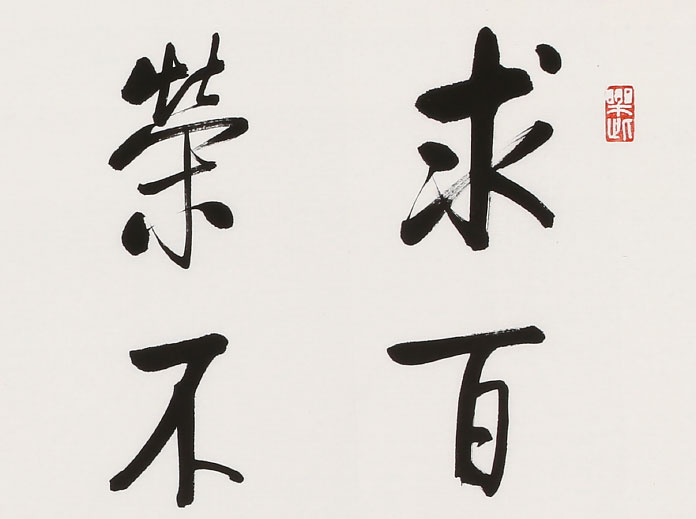 求百
榮不